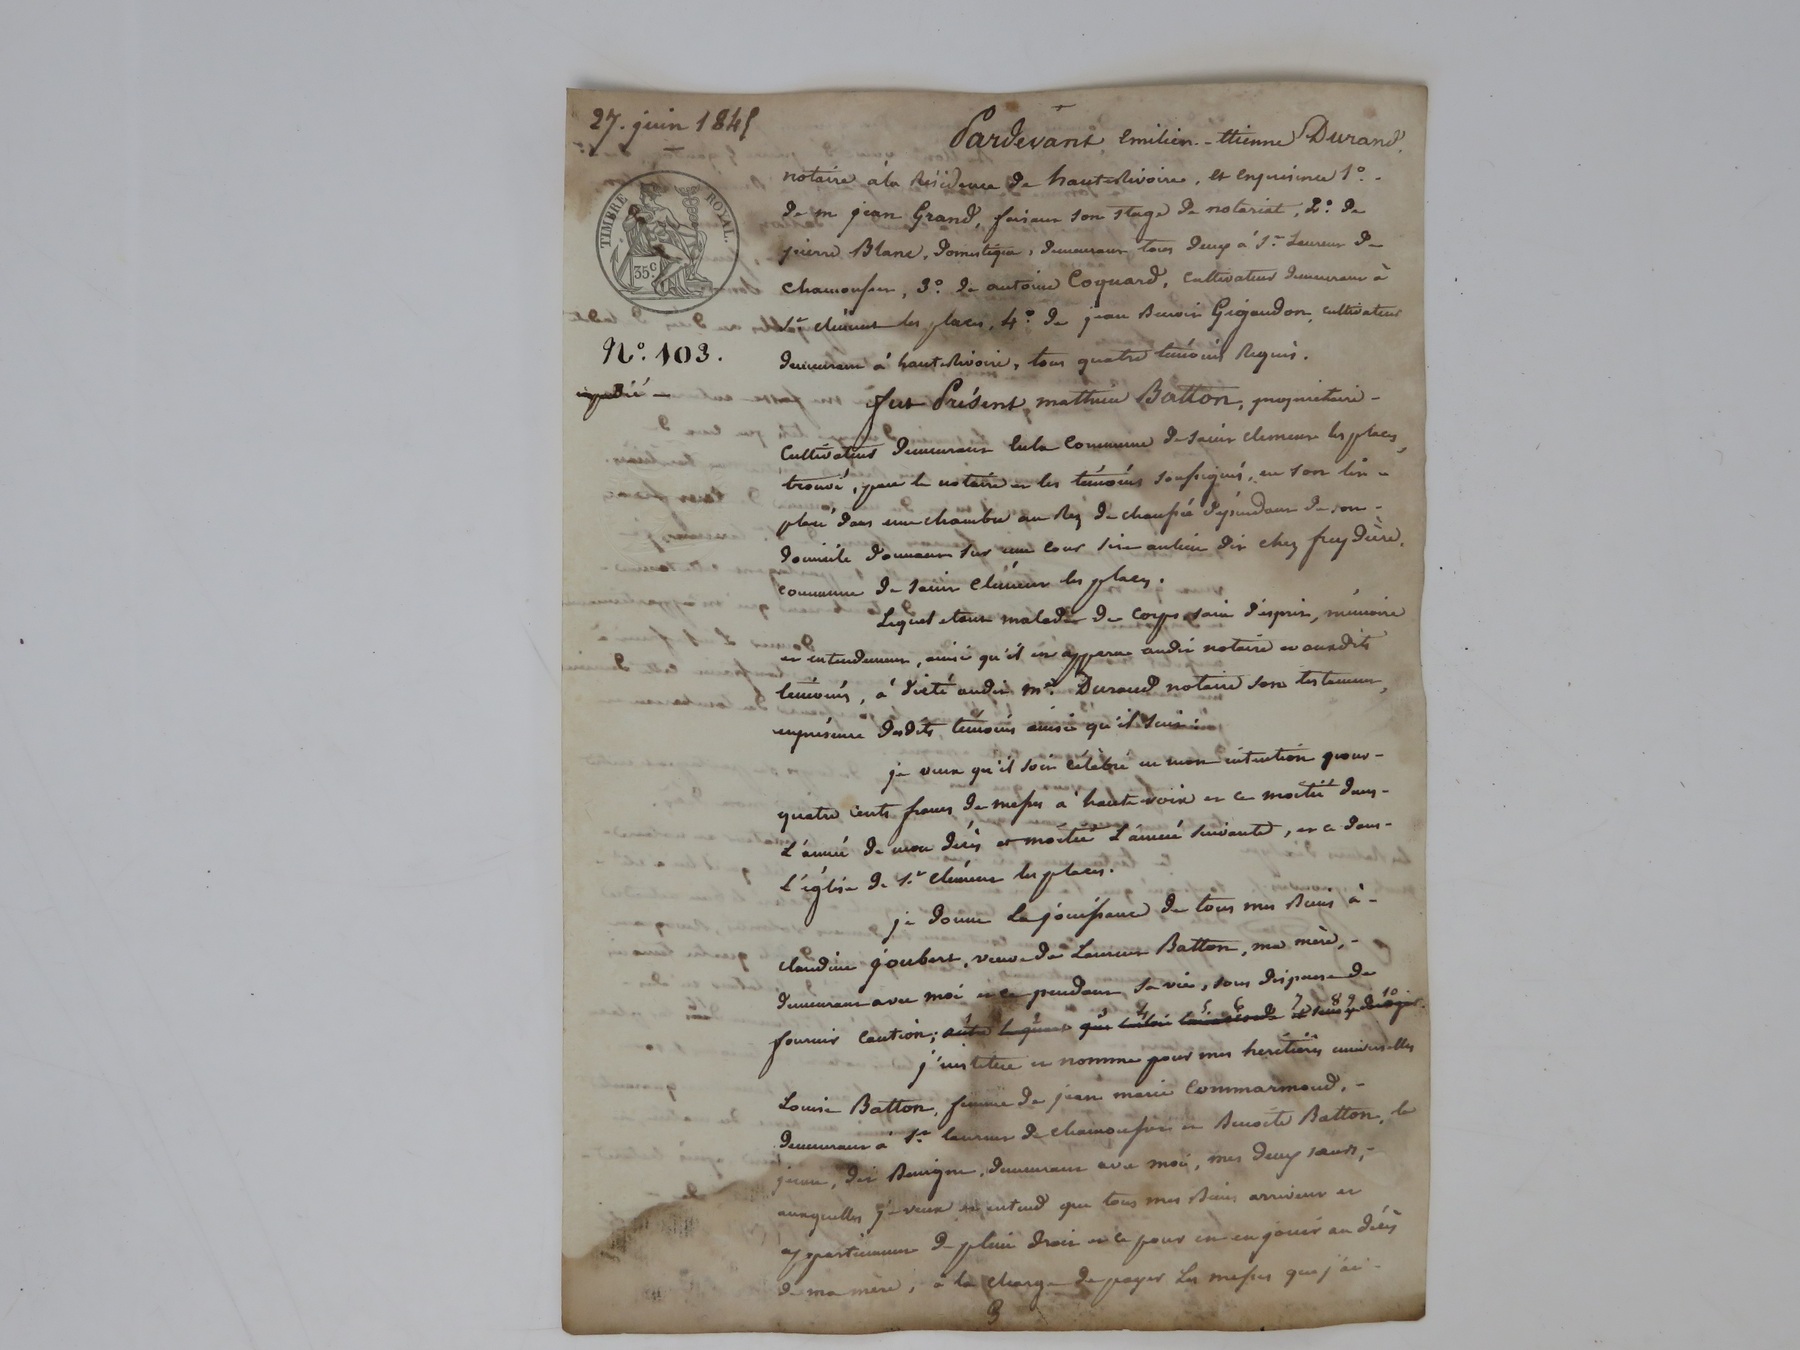 27. juin 1845
TIMBRE ROYAL.
35c
N.º 103.
expédié
Pardevant Emilien-Etienne Durand,
notaire à la Résidence de haute Rivoire, et en présence 1º.
de m jean Grand, faisant son stage de notariat, 2º. de
pierre Blanc, domestique, demeurant tous deux à St. Laurent de
chamousset, 3º. de antoine Coquard, cultivateur demeurant à
St. clément les places, 4º. de jean Benoit Gigandon, cultivateur
demeurant à haute Rivoire, tous quatre témoins Requis.
fut Présent, mathieu Batton, propriétaire-
Cultivateur demeurant en la Commune de saint clement les places,
trouvé, par le notaire et les témoins soussignés, en son lit
placé dans une chambre au Rez de chaussée dépendant de son
domicile donnant sur une cour sise au lieu dit chez freydière,
commune de saint clément les places.
Lequel étant malade de corps sain d'esprit, mémoire
et entendement, ainsi qu'il en apparu audit notaire et auxdits
témoins, à dicté audit me. Durand notaire son testament,
en présence desdits témoins ainsi qu'il suit:
je veux qu'il soit célébré en mon intention pour
quatre cents francs de messes à haute voix et ce moitié dans
L'année de mon décès et moitié L'année suivante, et ce dans
L'église de St. clément les places.
je donne La jouissance de tous mes Biens à
claudine joubert, veuve de Laurent Batton, ma mère,
demeurant avec moi et ce pendant sa vie, sans dispense de
fournir caution;
j'institue et nomme pour mes heritières universelles
Louise Batton, femme de jean marie Commarmond,
demeurant à St. laurent de chamousset et Benoite Batton, le
jeune, dit Benigne, demeurant avec moi, mes deux sœurs,
auxquelles je veux et entend que tous mes Biens arrivent et
appartiennent de plein droit et ce pour en en jouir au décès
de ma mère, à la charge de payer Les messes que j'ai